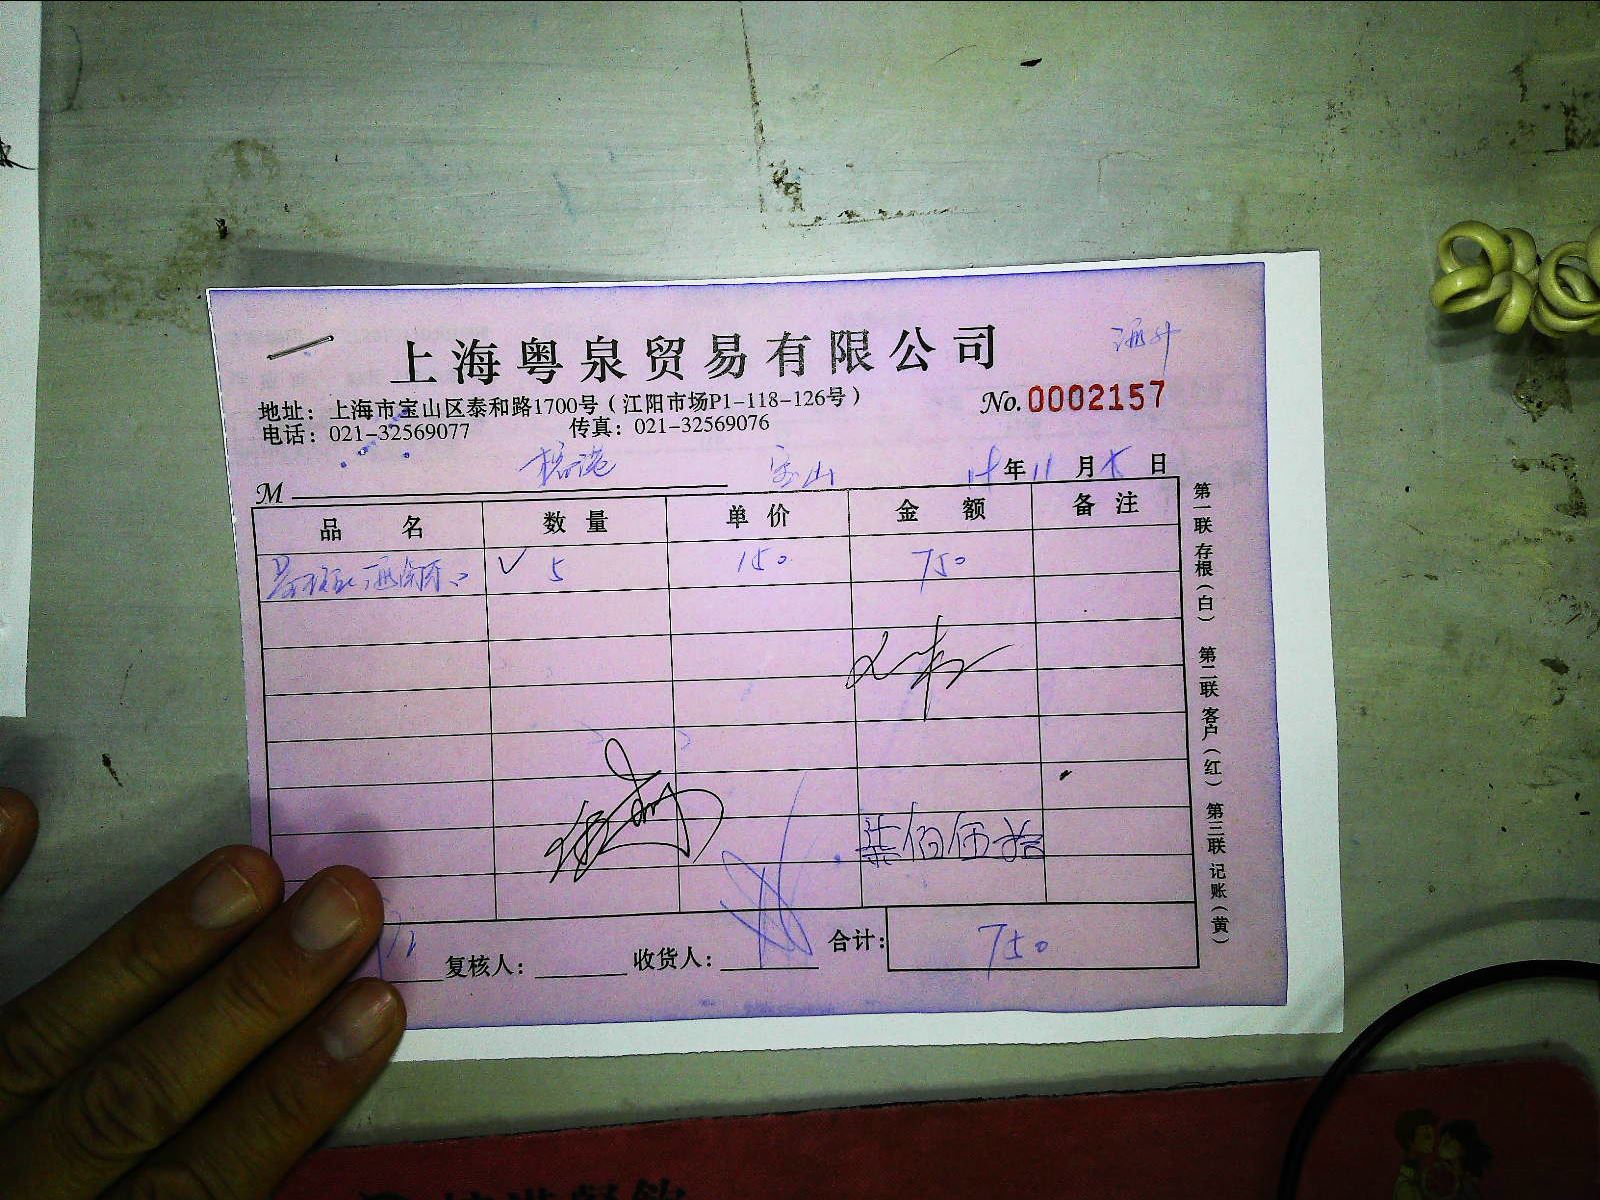 上海粤泉贸易有限公司
No. 0002157
地址：上海市宝山区泰和路1700号（江阳市场P1-118-126号）
电话：021-32569077 传真：021-32569076
M 宝山 年 11 月 5 日
品名 数量 单价 金额 备注
5 150 750
柒佰伍拾
复核人： 收货人： 合计： 750
第一联 存根（白） 第二联 客户（红） 第三联 记账（黄）